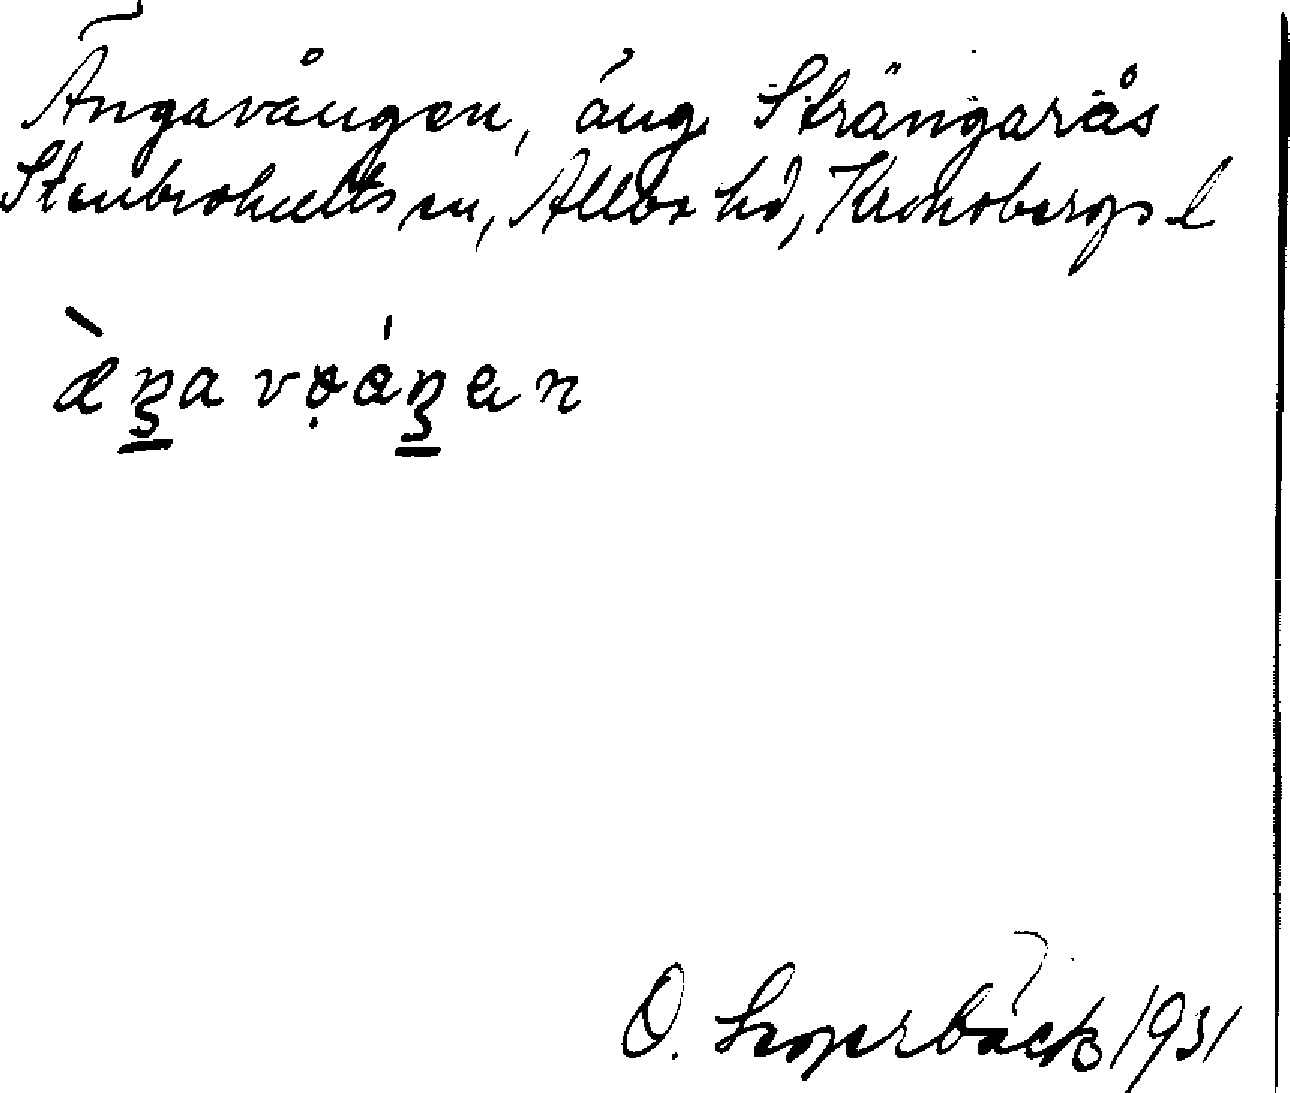 Ängavången, äng. Strängarås
Stenbrohults sn, Allbo hd, Kronobergs l
æ̀ŋa vọáŋen
O. 1931